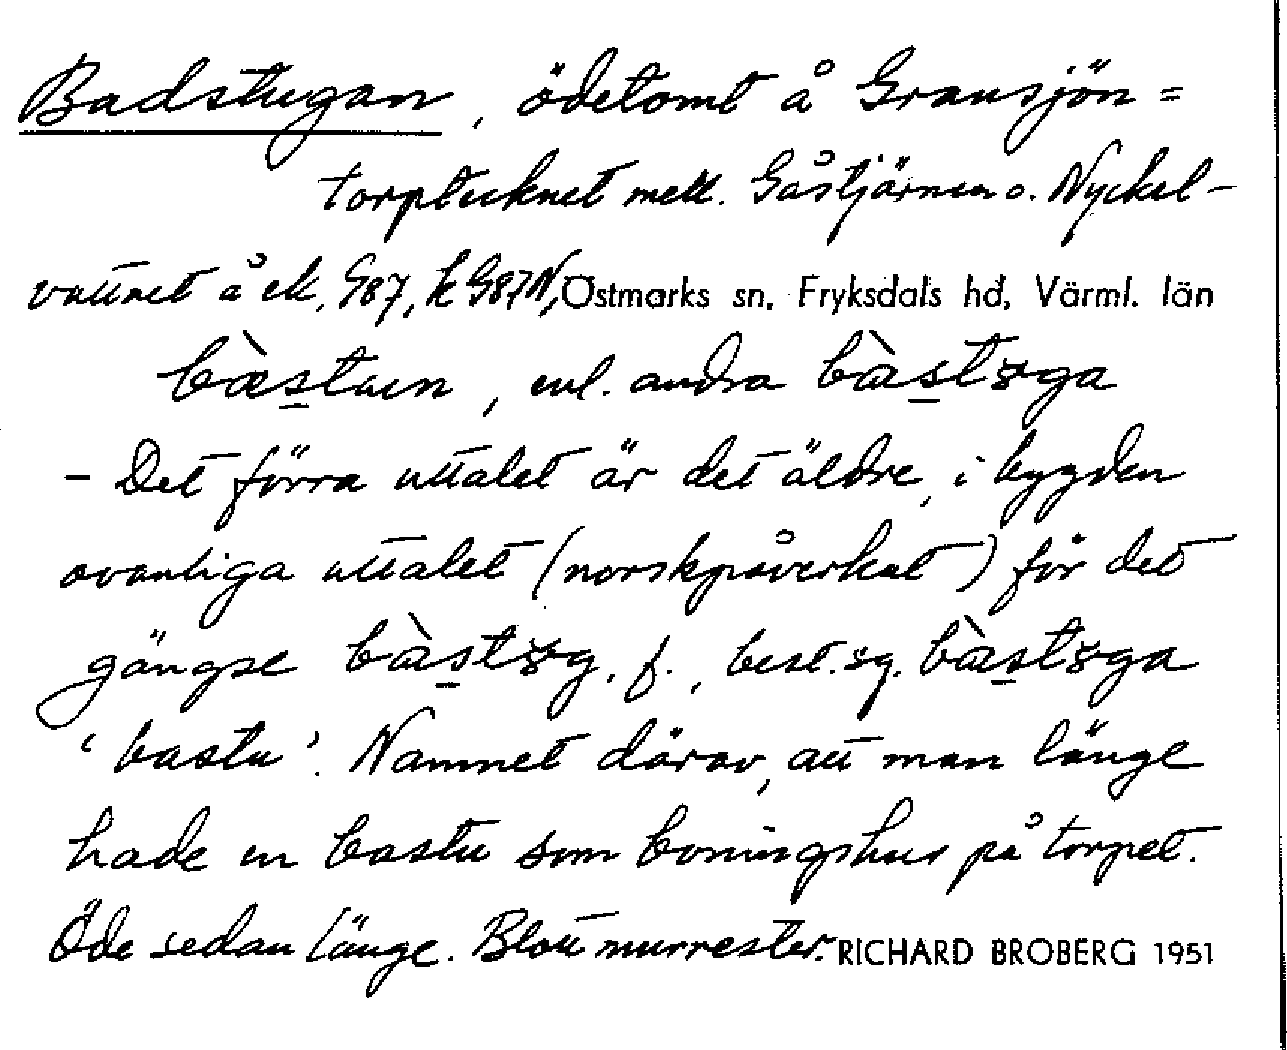 Badstugan, ödetomt å Gransjön=
torpteknet mell. Gåstjärnen o. Nyckel-
vattnet å ek. 987, k 987N, Östmarks sn. Fryksdals hd, Värml. län
bæ̀stuen, enl. andra bæ̀stɤga
- Det förra uttalet är det äldre, i bygden
ovanliga uttalet (norskpåverkat) för det
gängse bæ̀stɤg, f., best. sg. bæ̀stɤga
'bastu'. Namnet därav, att man länge
hade en bastu som boningshus på torpet.
Öde sedan länge. Blott murrester. RICHARD BROBERG 1951